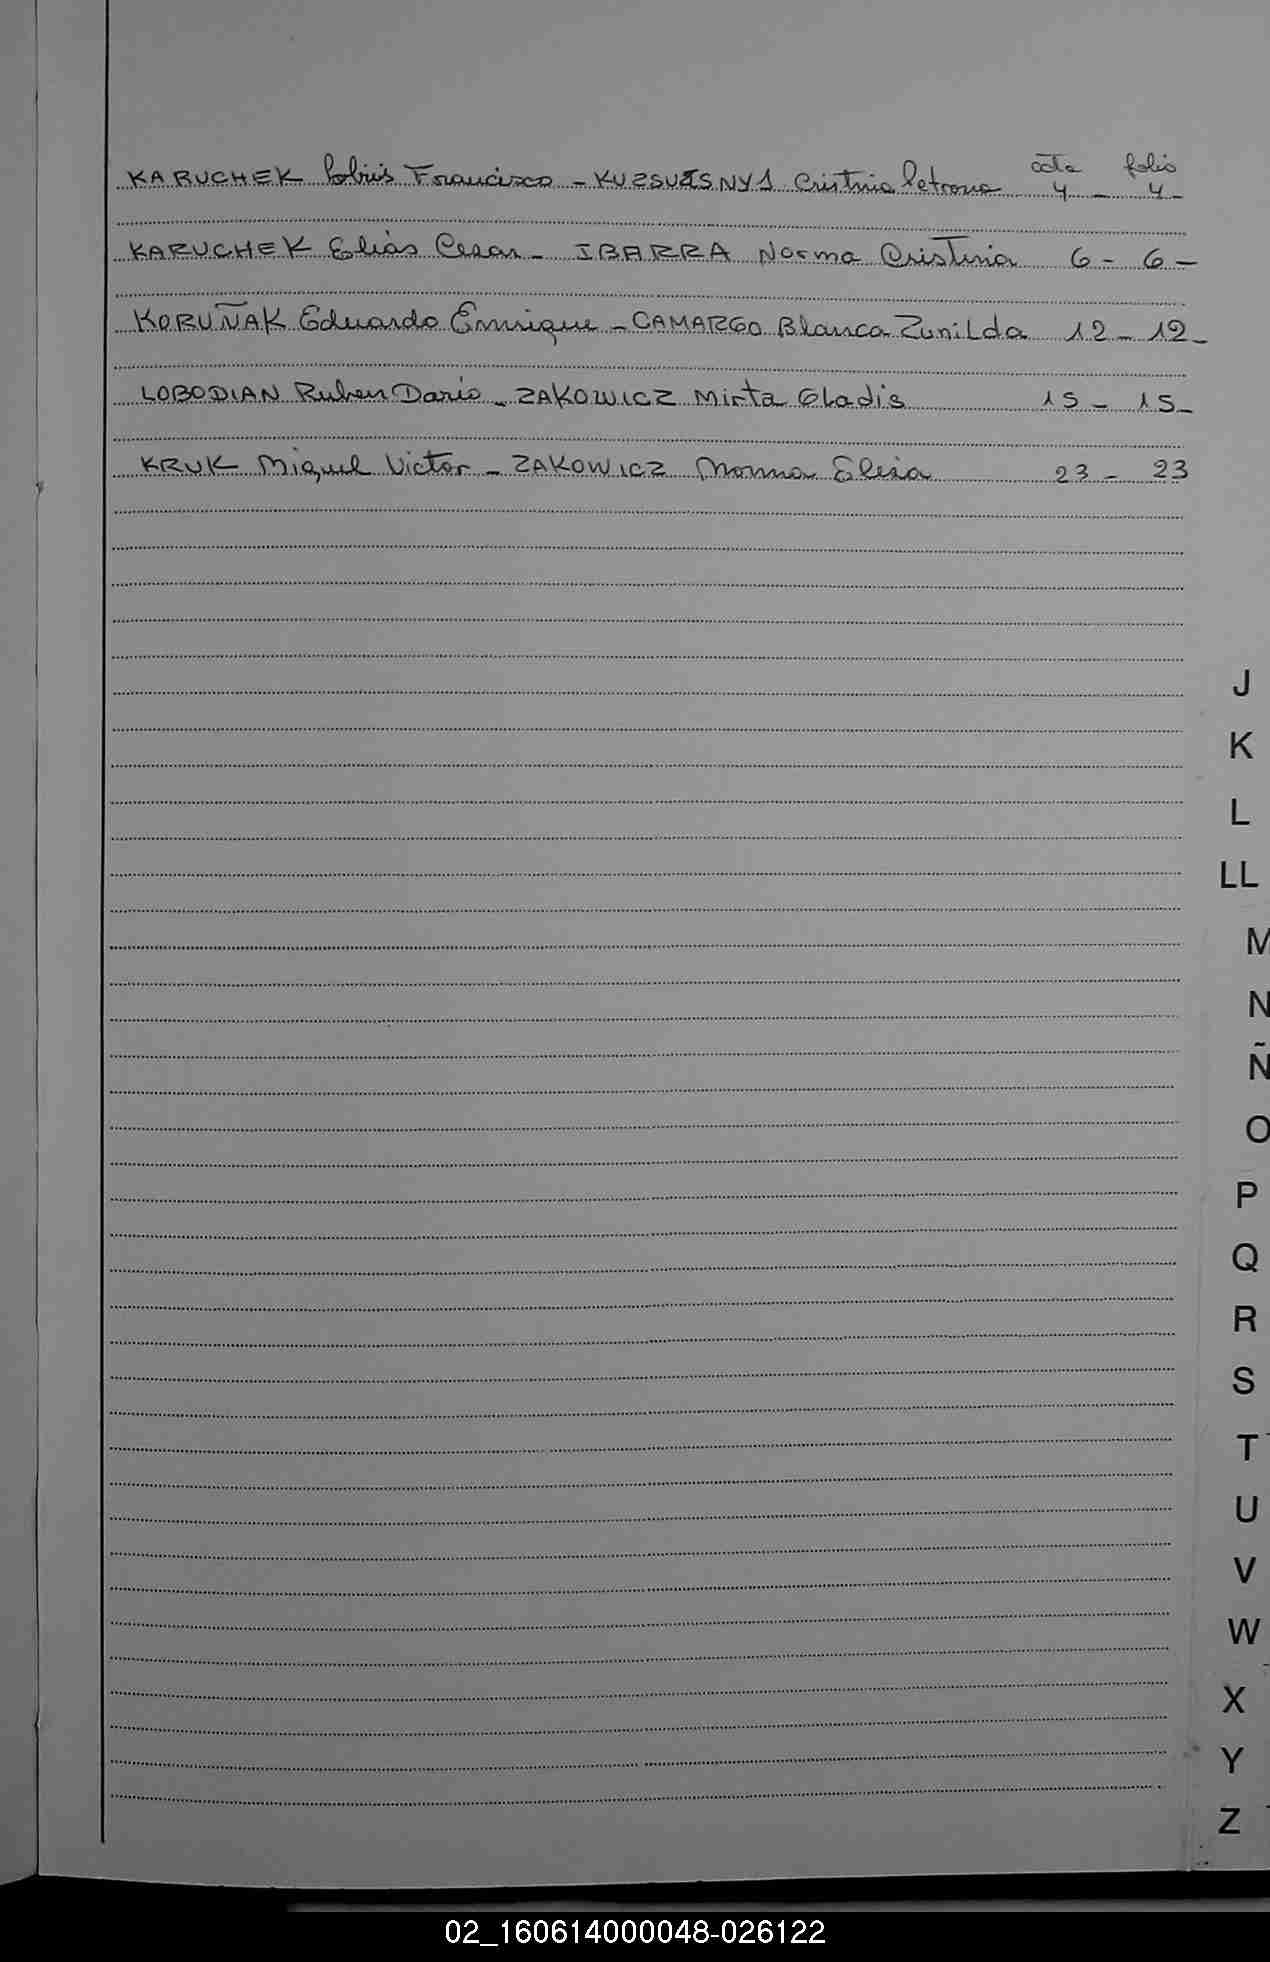 acta folio
KARUCHEK Francisco - KUZSUZSNY1 Cristina Petrona 4 - 4 -
KARUCHEK Elias Cesar - IBARRA Norma Cristina 6 - 6 -
KORUÑAK Eduardo Enrrique - CAMARGO Blanca Zunilda 12 - 12 -
LOBODIAN Ruben Dario - ZAKOWICZ Mirta Gladis 15 - 15 -
KRUK Miguel Victor - ZAKOWICZ Norma Elisa 23 - 23
J
K
L
LL
M
N
Ñ
O
P
Q
R
S
T
U
V
W
X
Y
Z
02_160614000048-026122